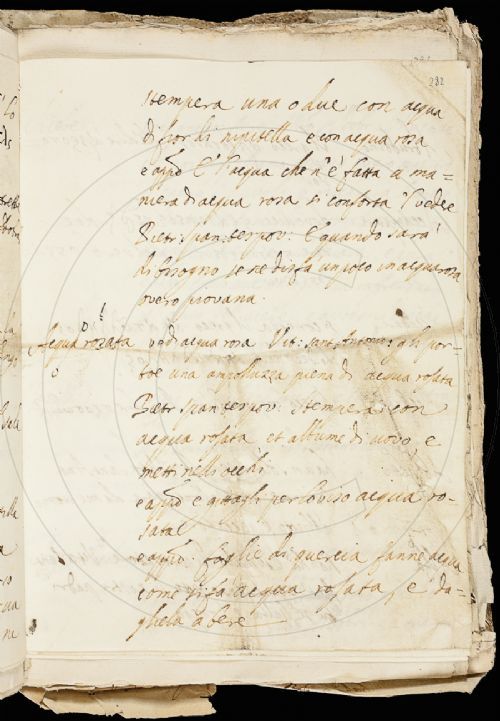 282
stempera una o due con acqua
di fior di mirtella e con acqua rosa
e app.o E' l'acqua che n'è fatta a ma=
niera di acqua rosa si conforta 'l vedere
Pietr: Span: tes: pov: E quando sarà
di bisogno se ne disfa un poco in acqua rosa
overo piovana.
Acqua rosata v.o di acqua rosa Vit: Sant'Anton: gli por=
toe una ampolluzza piena di acqua rosata
Pietr Span: tes: pov: stempera con
acqua rosata et albume di uovo, e
metti nelli occhi
e app.o e gittagli per lo viso acqua ro=
sata
e app.o: foglie di quercia fanne acqua
come si fa acqua rosata, e da=
gliela a bere